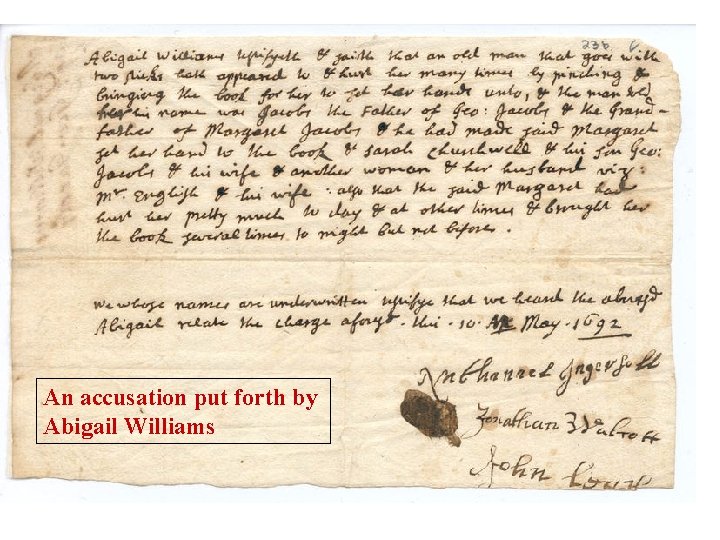 236
Abigail Williams testifyeth & saith that an old man that goes with
two sticks hath appeared to & hurt her many times by pinching &
bringing the book for her to set her hand unto, & the man told
her his name was Jacobs the Father of Geo: Jacobs & the Grand-
father of Margaret Jacobs & he had made said Margaret
set her hand to the book & Sarah Churchwell & his son Geo:
Jacobs & his wife & another woman & her husband viz:
Mr. English & his wife: also that the said Margaret had
hurt her pretty much to day & at other times & brought her
the book several times to night but not before.
We whose names are underwritten testifye that we heard the abovesd
Abigail relate the charge aforesd. this. 10. May. 1692
Nathanell Ingersoll
Jonathan Walcott
John
An accusation put forth by
Abigail Williams